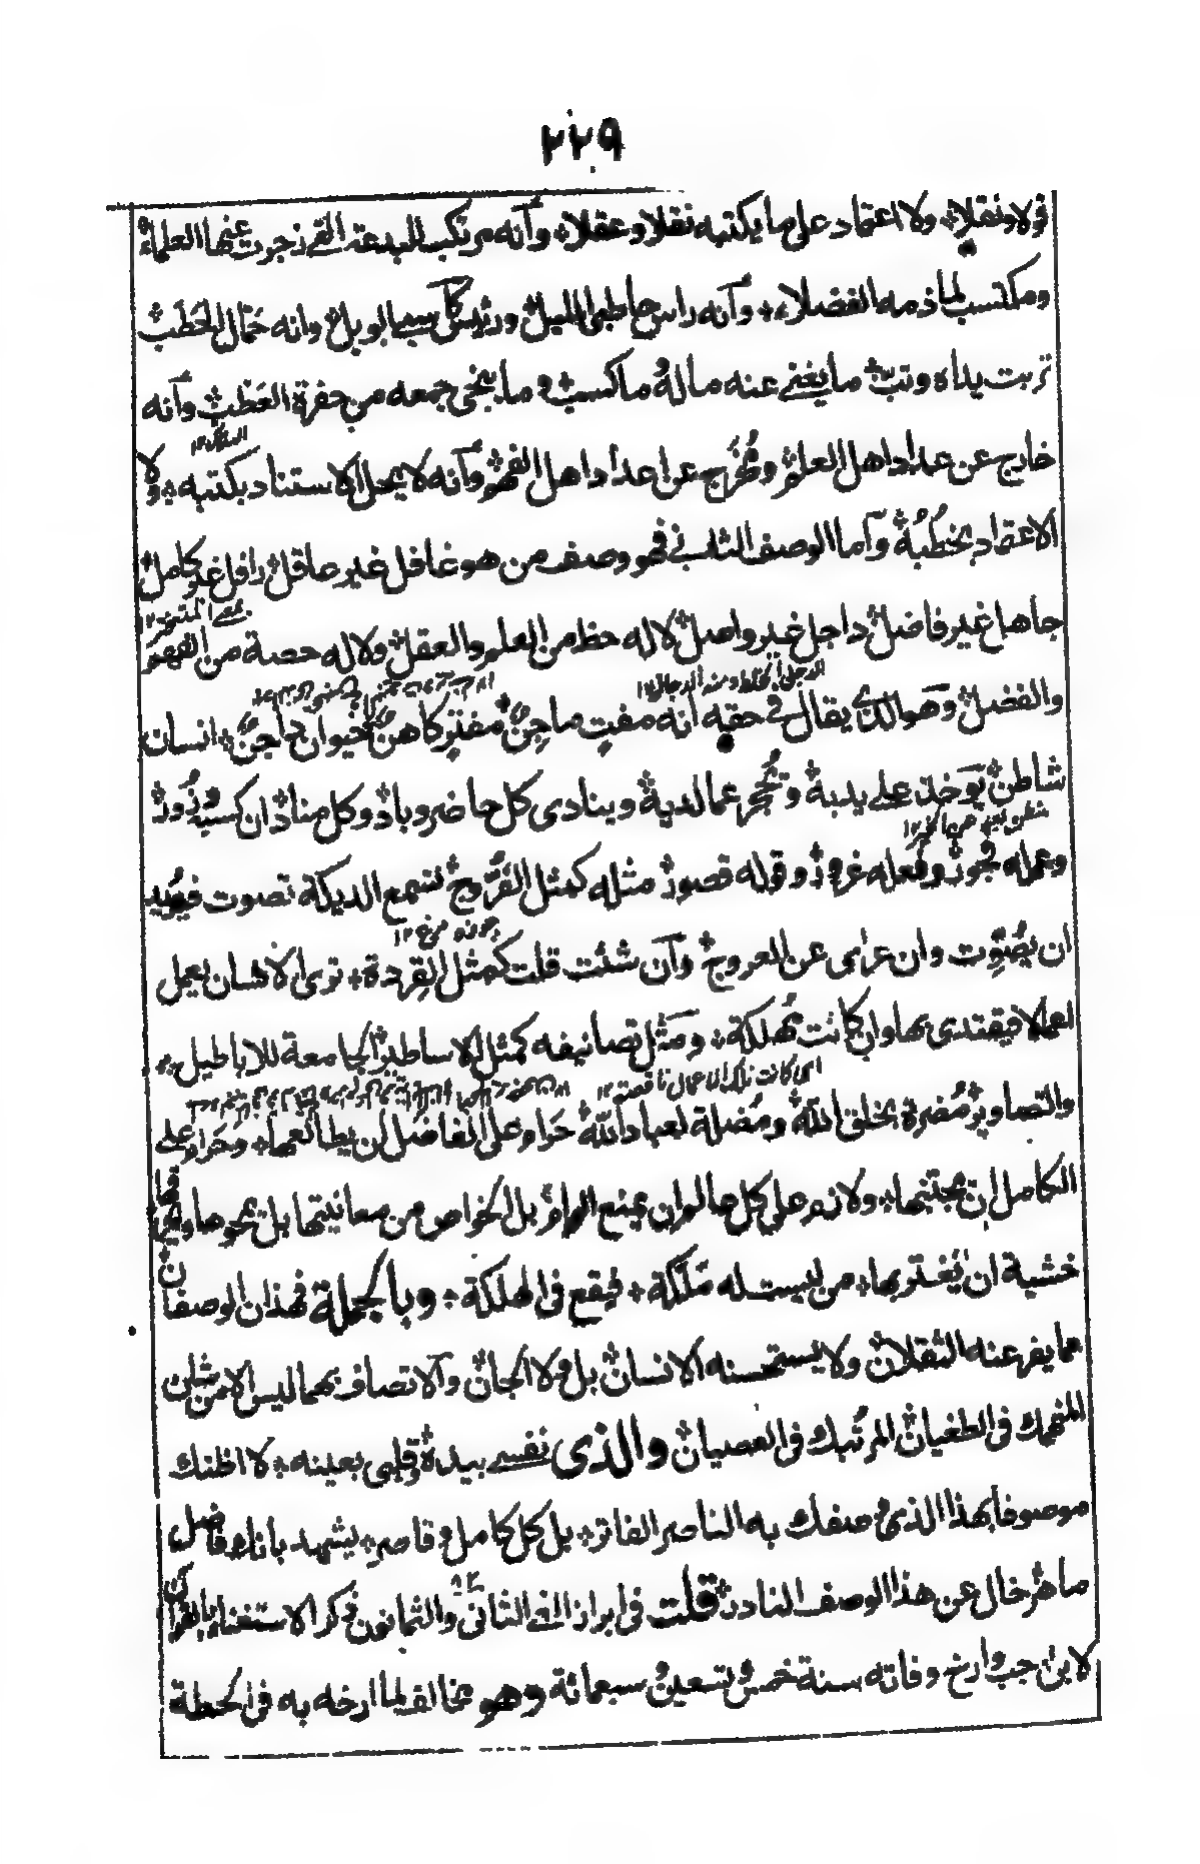 ٢٢٩
قولا ونقلا ولا اعتماد على ما يكتبه نقلا وعقلا وأنه مرتكب للبدعة التى زجرت عنها العلماء
ومكتسب لما ذمه الفضلاء وأنه راس حاطبى الليل ورئيس كاسبى الويل وانه حمّال الحَطَب
تربت يداه وتبّ ما يغنى عنه ماله وما كسب وما ينجى جمعه من حفرة العَطَب وأنه
خارج عن عداد اهل العلم ومُخْرَج عن اعداد اهل الفهم وأنه لا يحل الاستناد بكتبه ولا
الاعتماد بخُطَبِه وأما الوصف الثانى فهو وصف من هو غافل غير عاقل رافل غير كامل
جاهل غير فاضل داجل غير واصل لا له حظ من العلم والعقل ولا له حصة من الفهم
الدجل الخلط ومنه الدجال ١٢
والفضل وهو الذى يقال فى حقه انه مفت ماجن مفتر كاهن حيوان داجن انسان
شاطن يؤخذ على يديه وتحجر عما لديه وينادى كل حاضر وباد وكل مناد ان كسبه زور
وعمله فجور وفعله غرور وقوله قصور مثله كمثل الفرّوج تسمع الديكة تصوت فيريد
ان يصوّت وان عرى عن العروج وأن شئت قلت كمثل القردة ترى الانسان يعمل
اعمالا فيقتدى بها وان كانت مهلكة ومَثَل تصانيفه كمثل الاساطير الجامعة للاباطيل
اى كانت تلك الاعمال ناقصة ١٢
والتصاوير مُضرة بخلق الله ومُضلة لعباد الله حَرام على الفاضل ان يطالعها وحَرام على
الكامل ان يجتنبها ولازم على كل عالم ان يمنع العوام بل الخواص من معائنتها بل يمحوها
خشية ان يَغتر بها من ليست له مَلَكة فيقع فى الهلكة وبالجملة فهذان الوصفان
مما يفر عنه الثقلان ولا يستحسنه الانسان بل ولا الجان وألاتصاف بهما ليس الا من شان
المنهمك فى الطغيان المرتبك فى العصيان والذى نفسى بيده وقلبى بعينه لا اظنك
موصوفا بهذا الذى وصفك به الناصر الفاتر بل كل كامل وقاصر يشهد بانك فاضل
ماهر خال عن هذا الوصف النادر قلت فى ابراز الغى الثانى والثمانون ذكر الاستغناء بالقرآن
لابن رجب وارخ وفاته سنة خمس وتسعين وسبعمائة وهو مخالف لما ارخه به فى الحطة